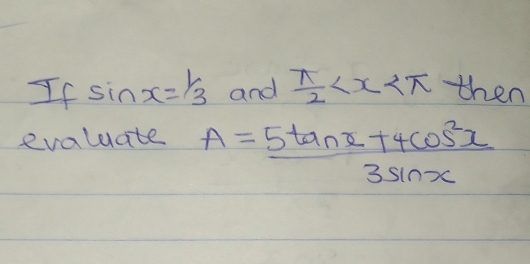 If sinx = 1/3 and π/2 < x < π then
evaluate A = 5tanx + 4cos²x
3sinx